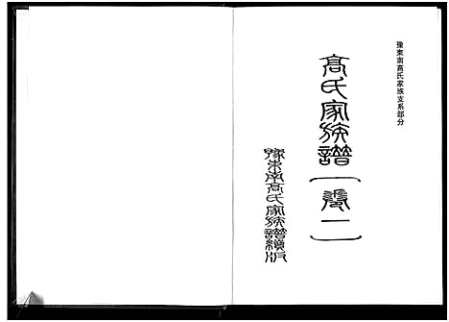 豫東南高氏家族支系部分
高氏家族譜
〔卷一〕
豫东南高氏家族譜續版